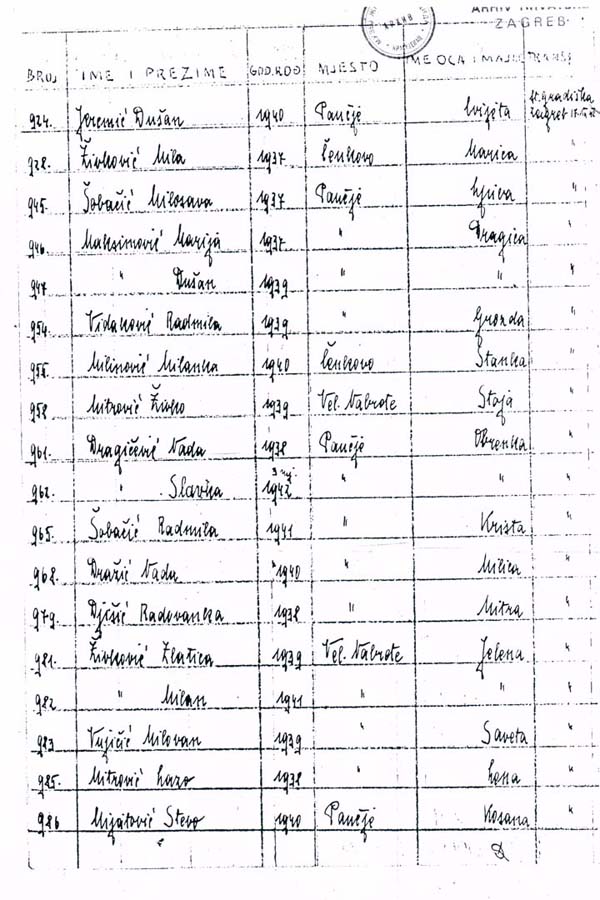 ARHIV HRVATSKE
ZAGREB
BROJ IME I PREZIME GOD.ROĐ MJESTO IME OCA I MAJKE TRANSP.
924. Jeremić Dušan 1940 Pančje Cvijeta St. gradiška Zagreb
928. Živković Mila 1937 Čenkovo Marica "
945. Šobačić Milosava 1937 Pančje Ljiva "
946. Maksimović Marija 1937 " Dragica "
947. " Dušan 1939 " " "
954. Vidaković Radmila 1939 " Grozda "
955. Milinović Milanka 1940 Čenkovo Stanka "
958. Mitrović Živko 1939 Vel. Nabrđe Staja "
961. Dragičević Nada 1938 Pančje Obrenka "
962. " Slavica 3 mj. 1942 " " "
965. Šobačić Radmila 1941 " Krista "
968. Dražić Nada 1940 " Milica "
979. Djišić Radovanka 1938 " Mitra "
981. Živković Zlatica 1939 Vel. Nabrđe Jelena "
982 " Milan 1941 " " "
983 Vujičić Milovan 1939 " Saveta "
985. Mitrović Lazo 1938 " Lena "
986 Mijatović Stevo 1940 Pančje Kosana "